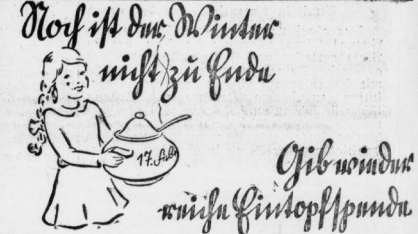 Noch ist der Winter
nicht zu Ende
17. Feb.
Gib wieder
reiche Eintopfspende